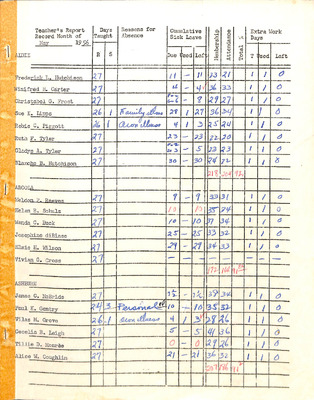 Teacher's Report Days Reasons for Cumulative Membership Attendance Total % Extra Work
Record Month of Taught Absence Sick Leave Days
May 1956 R S Due Used Left T Used Left
ALDIE
Frederick L. Hutchison 27 11 - 11 23 21 1 1 0
Winifred H. Carter 27 4 - 4 36 33 1 1 0
Christabel G. Frost 27 - 29 27 1 1 0
Sue K. 26 1 Family illness 28 1 27 36 34 1 1 0
Robie C. Piggott 26 1 Own illness 4 1 3 25 24 1 1 0
Ruth F. Tyler 27 23 - 23 22 20 1 1 0
Gladys L. Tyler 27 - 5 23 23 1 1 0
Blanche B. Hutchison 27 30 - 30 24 22 1 1 0
218 204 92
ARCOLA
Nelson J. 27 9 - 9 33 31 1 1 0
Helen H. Schulz 27 10 - 10 35 34 1 1 0
Wanda G. Huck 27 10 - 10 37 34 1 1 0
Josephine diZerega 27 25 - 25 33 32 1 1 0
Elsie M. Wilson 27 29 - 29 34 33 1 1 0
Vivian G. Cross - - - - - - - - -
172 164
ASHBURN
James C. McBride 27 - 38 34 1 1 0
Paul K. Gentry 24 3 Personal 10 - 10 35 32 1 1 0
Vilas H. Grove 26 1 Own illness 4 1 3 28 26 1 1 0
Genelia R. Leigh 27 5 - 5 41 36 1 1 0
Tillie D. 27 0 - 0 29 26 1 1 0
Alice M. Coughlin 27 21 - 21 36 32 1 1 0